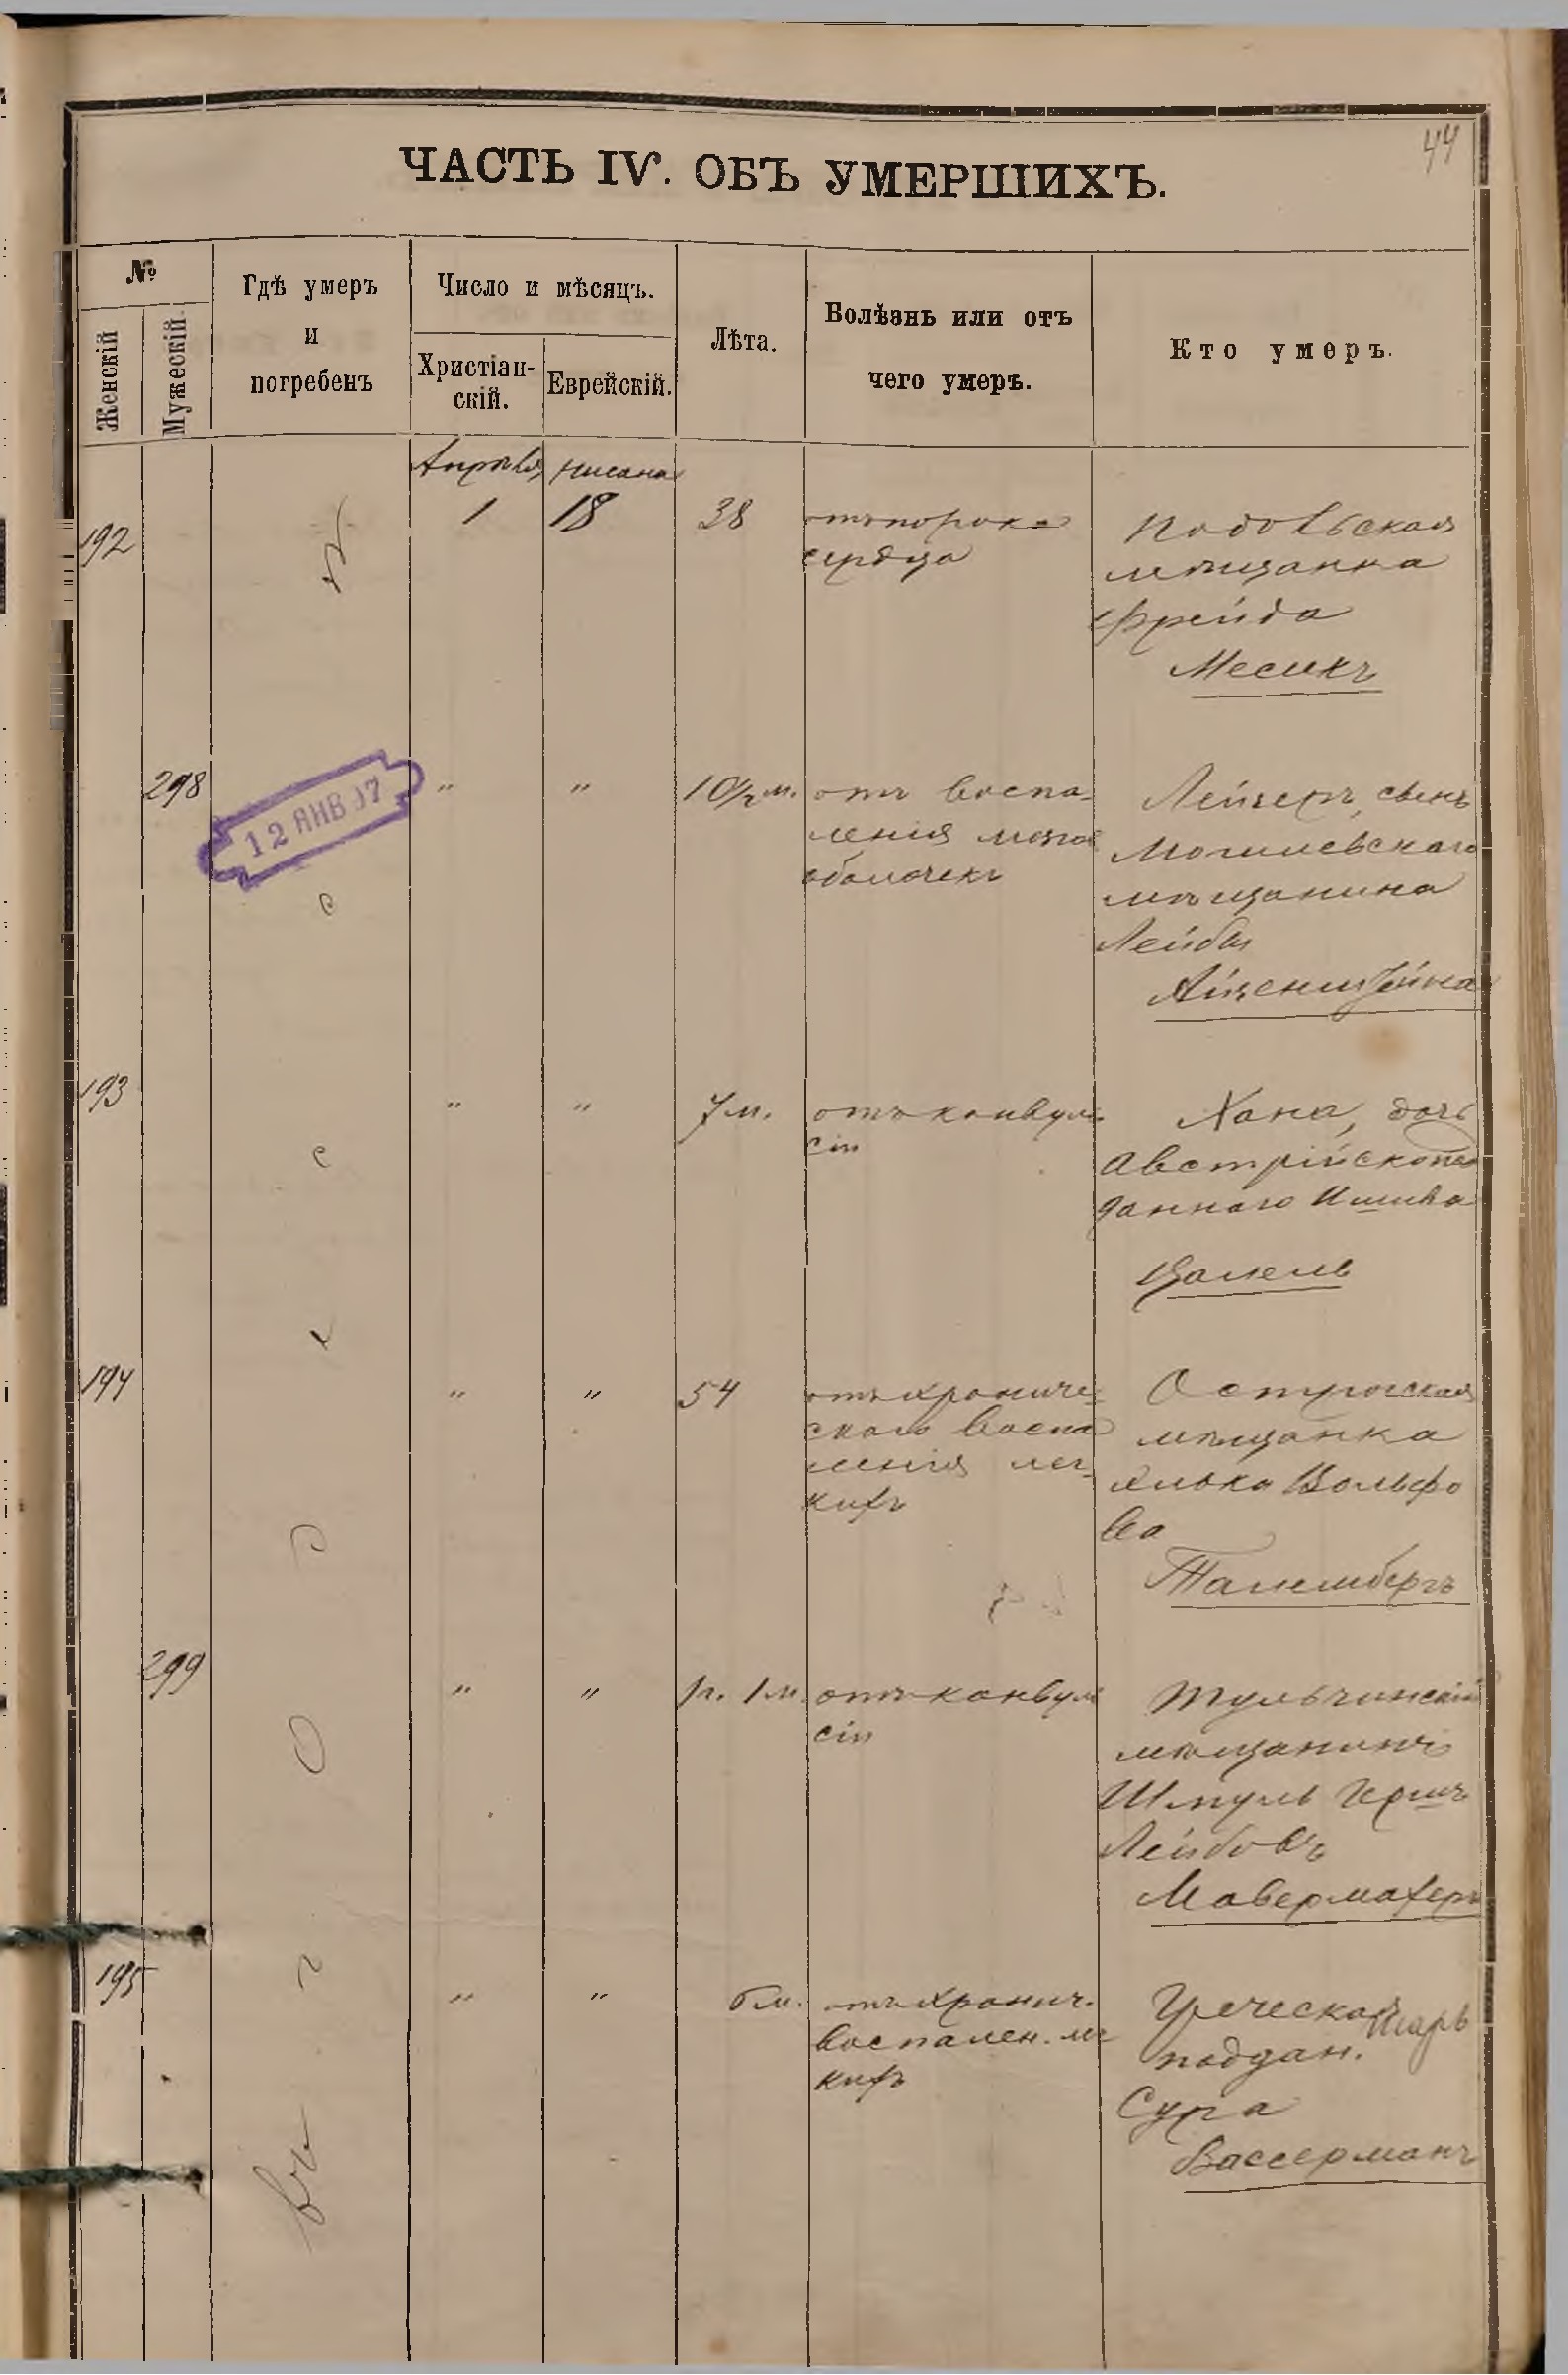 44
ЧАСТЬ IV. ОБЪ УМЕРШИХЪ.
№
Женскій
Мужескій.
Гдѣ умеръ
и
погребенъ
Число и мѣсяцъ.
Христіан-
скій.
Еврейскій.
Лѣта.
Болѣзнь или отъ
чего умеръ.
Кто умеръ.
въ г Одессѣ
Апрѣля
Нисана
192
1
18
38
отъ порока
сердца
Подольская
мѣщанка
Фрейда
Месикъ
298
12 ЯНВ 07
"
"
10½ м.
отъ воспа-
ленія мозгов
оболочекъ
Лейзеръ, сынъ
Могилевскаго
мѣщанина
Лейбы
Айзенштейна
193
"
"
7 м.
отъ конвуль
сіи
Хана, дочь
Австрійскопод
даннаго
194
"
"
54
отъ хрониче-
скаго воспа
ленія лег-
кихъ
Острогская
мѣщанка
Вольфо
ва
299
"
"
1 г. 1 м.
отъ конвуль
сіи
Тульчинскій
мѣщанинъ
Шмуль Герш
Лейбовъ
Лавермахеръ
195
"
"
6 м.
отъ хронич.
воспален. ле
кихъ
Греческая
поддан.
Сура
Вассерманъ